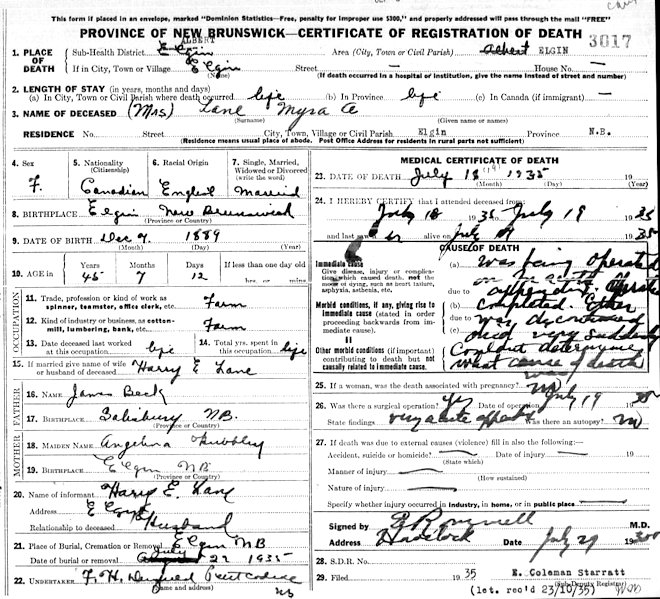 This form if placed in an envelope, marked "Dominion Statistics—Free, penalty for improper use $300," and properly addressed will pass through the mail "FREE"
PROVINCE OF NEW BRUNSWICK—CERTIFICATE OF REGISTRATION OF DEATH
3017
1. PLACE OF DEATH
Sub-Health District Elgin ALBERT
Area (City, Town or Civil Parish) Albert ELGIN
If in City, Town or Village Elgin Street — House No. —
(Name)
(If death occurred in a hospital or institution, give the name instead of street and number)
2. LENGTH OF STAY (in years, months and days)
(a) In City, Town or Civil Parish where death occurred life (b) In Province life (c) In Canada (if immigrant) —
3. NAME OF DECEASED (Mrs) Lane Myra A
(Surname) (Given name or names)
RESIDENCE No. Street City, Town, Village or Civil Parish Elgin Province N.B.
(Residence means usual place of abode. Post Office Address for residents in rural parts not sufficient)
4. Sex
F.
5. Nationality (Citizenship)
Canadian
6. Racial Origin
English
7. Single, Married, Widowed or Divorced (write the word)
Married
8. BIRTHPLACE Elgin New Brunswick
(Province or Country)
9. DATE OF BIRTH Dec 7 1889
(Month) (Day) (Year)
10. AGE in
Years Months Days If less than one day
45 7 12 hrs. or min.
OCCUPATION
11. Trade, profession or kind of work as spinner, teamster, office clerk, etc. Farm
12. Kind of industry or business, as cotton-mill, lumbering, bank, etc. Farm
13. Date deceased last worked at this occupation life
14. Total yrs. spent in this occupation life
15. If married give name of wife or husband of deceased Harry E Lane
FATHER
16. Name James Beck
17. Birthplace Salisbury NB.
(Province or Country)
MOTHER
18. Maiden Name Angelina
19. Birthplace Elgin NB
(Province or Country)
20. Name of informant Harry E. Lane
Address Elgin
Relationship to deceased Husband
21. Place of Burial, Cremation or Removal Elgin NB
Date of burial or removal July 22 1935
(Name and address)
22. UNDERTAKER F. H. Petitcodiac
NB
MEDICAL CERTIFICATE OF DEATH
23. DATE OF DEATH July 18 (19) 1935 19
(Month) (Day) (Year)
24. I HEREBY CERTIFY that I attended deceased from:
July 18 1935 to July 19 1935
and last saw h er alive on July 19 1935
CAUSE OF DEATH
Immediate cause
Give disease, injury or complication which caused death, not the mode of dying, such as heart failure, asphyxia, asthenia, etc.
Morbid conditions, if any, giving rise to immediate cause (stated in order proceeding backwards from immediate cause).
Other morbid conditions (if important) contributing to death but not causally related to immediate cause.
(a) Was being operated
on for acute
(b) appendix. operation
completed. Ether
(c) was discontinued
died very suddenly
Couldnt determine
what cause of death
was
25. If a woman, was the death associated with pregnancy? No
26. Was there a surgical operation? Yes Date of operation July 19 1935
State findings very acute appendix Was there an autopsy? No
27. If death was due to external causes (violence) fill in also the following:—
Accident, suicide or homicide? Date of injury 19
(State which)
Manner of injury
(How sustained)
Nature of injury
Specify whether injury occurred in industry, in home, or in public place
Signed by M.D.
Address Havelock Date July 29 1935
28. S.D.R. No.
29. Filed 19 35 E. Coleman Starratt
(Sub-Deputy Registrar)
(let. rec'd 23/10/35)